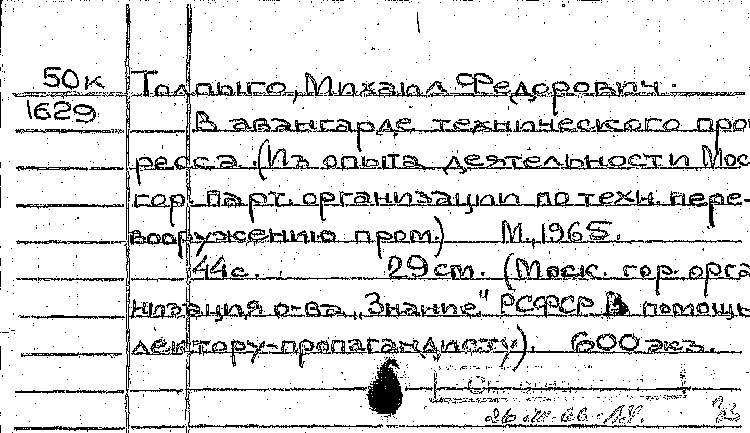 50к
1629
Толпыго, Михаил Федорович.
В авангарде технического прог
ресса. (Из опыта деятельности Мос
гор. парт. организации по техн. пере-
вооружению пром.) М., 1965.
44 с. 29 см. (Моск. гор. орга
низация о-ва "Знание" РСФСР В помощь
лектору-пропагандисту). 600 экз.